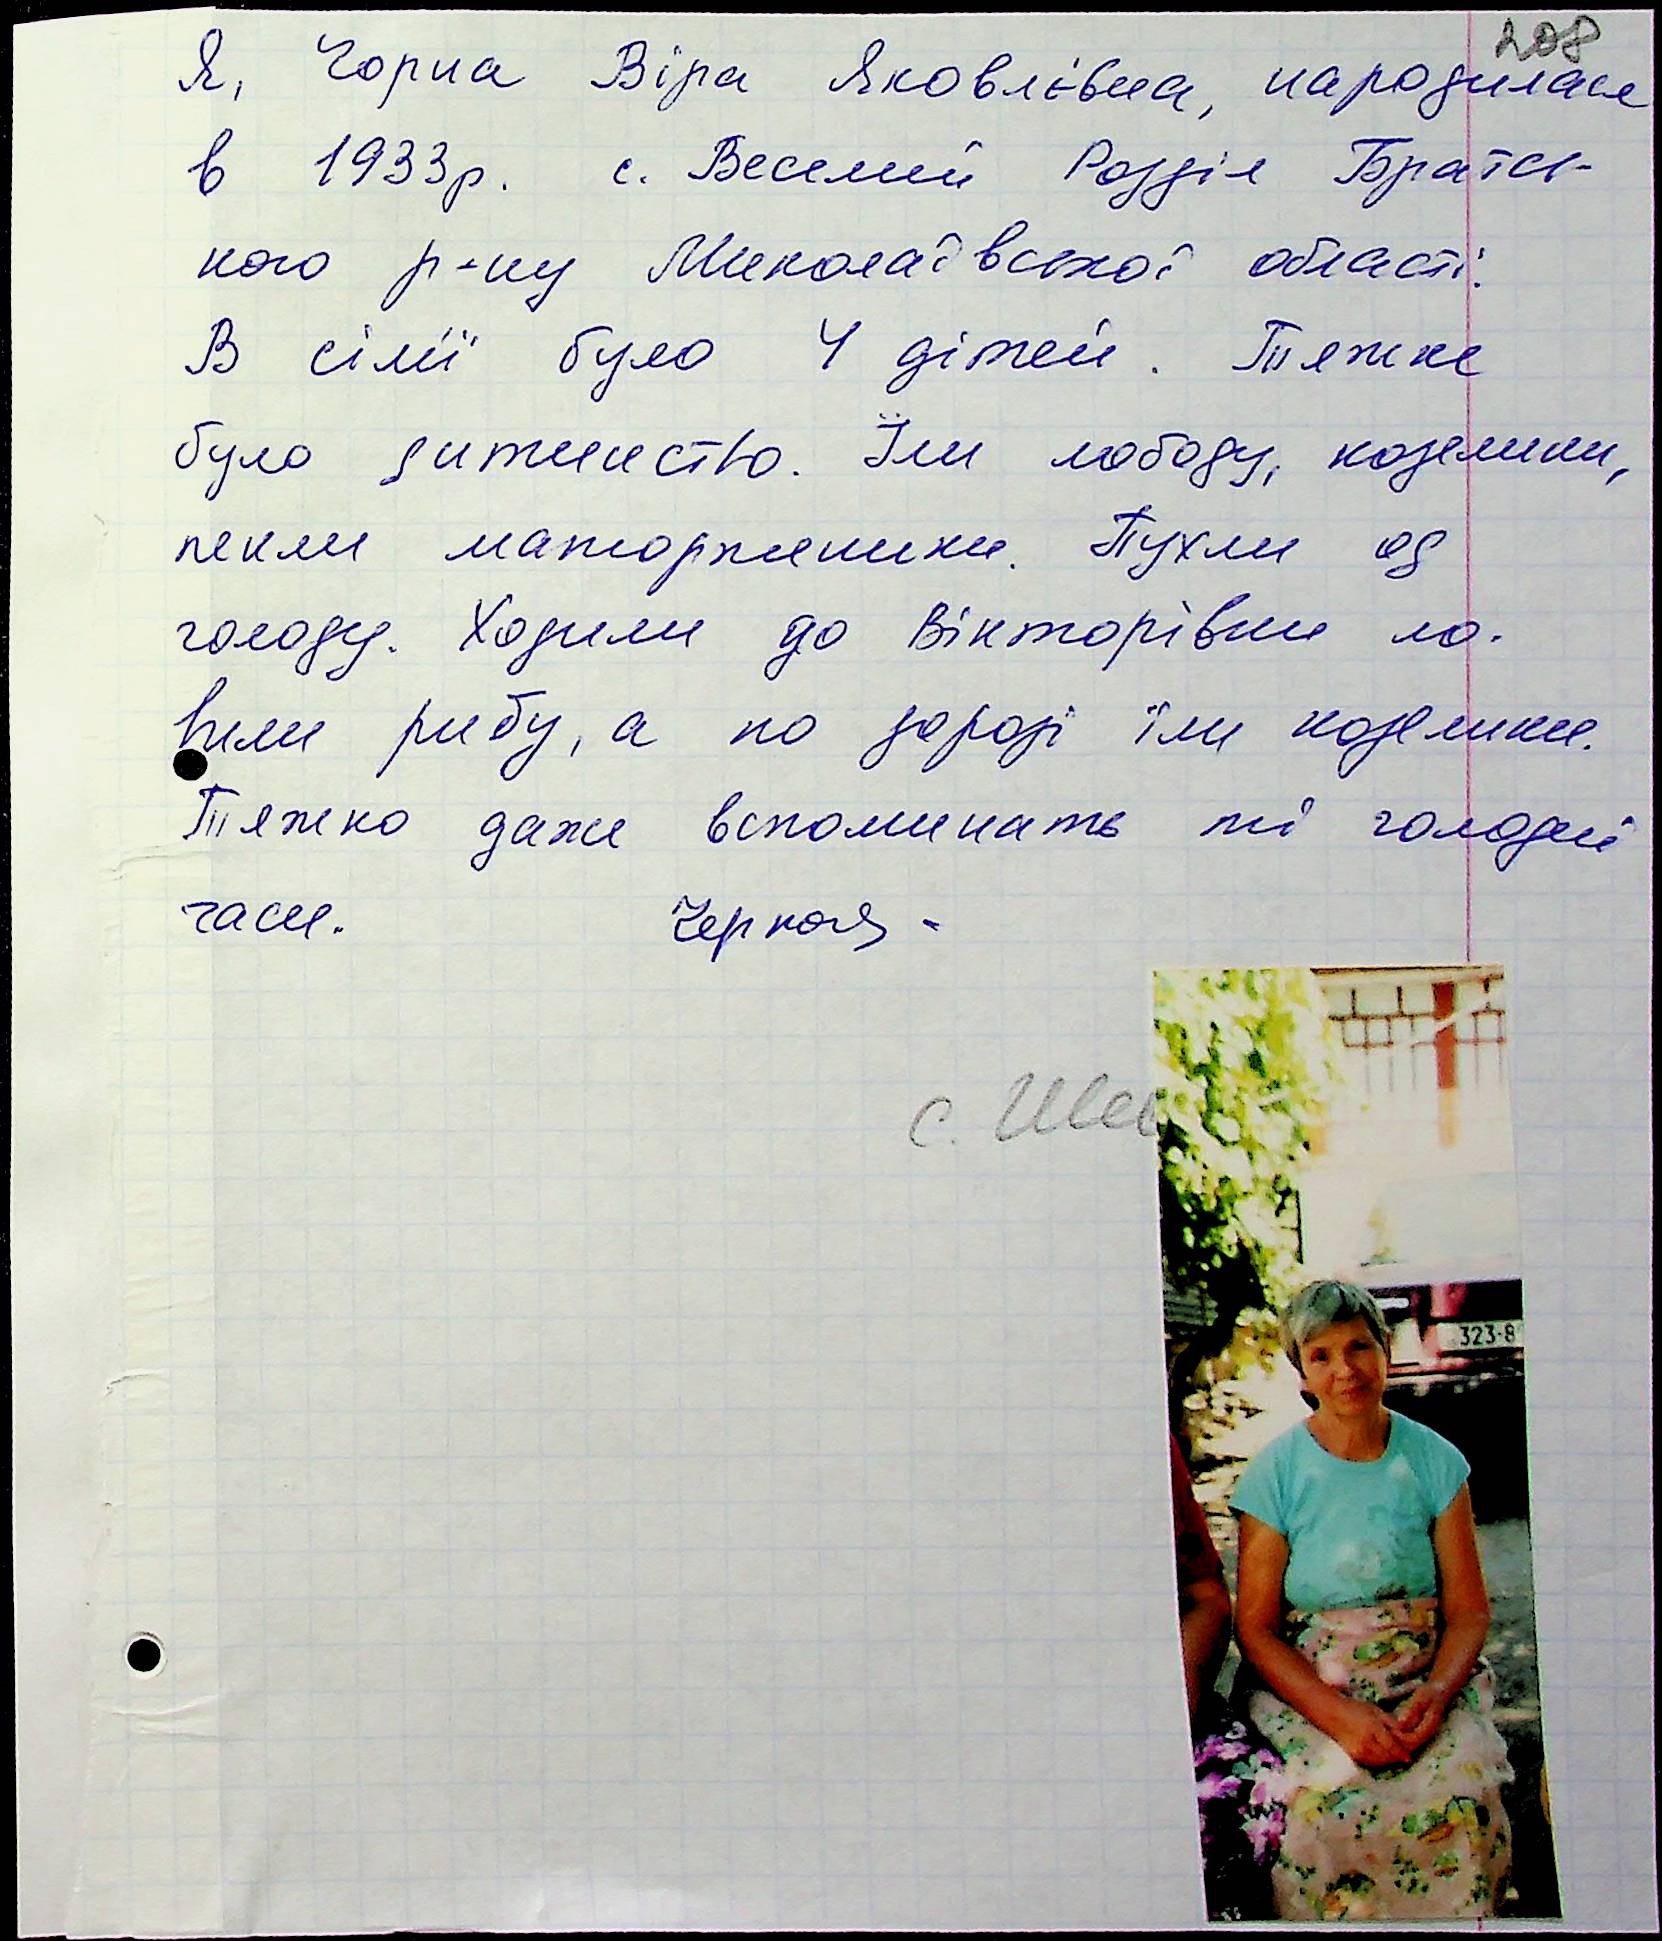 208
Я, Чорна Віра Яковлівна, народилася
в 1933р. с. Веселий Розділ Братсь-
кого р-ну Миколаївської області.
В сімї було 4 дітей. Тяжке
було дитинство. Їли лободу, козелики,
пекли маторженики. Пухли од
голоду. Ходили до Вікторівки ло-
вили рибу, а по дорозі їли козелики.
Тяжко даже вспоминать ті голодні
часи. Черная -
с. Шев
323-8